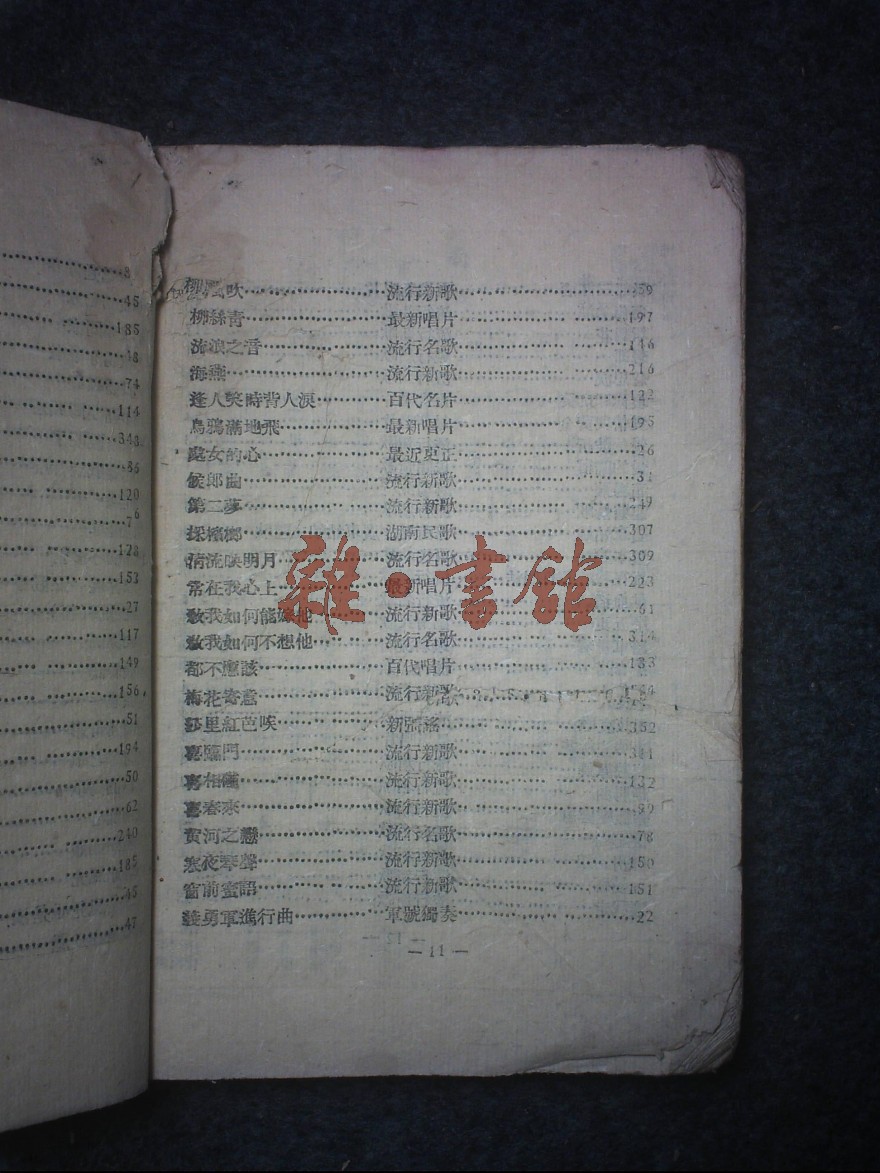 8
45
185
48
74
114
348
86
120
76
128
153
27
117
149
156
51
194
50
62
240
185
45
47
吹……流行新歌……59
柳絲青……最新唱片……197
流浪之音……流行名歌……146
海燕……流行新歌……216
逢人笑時背人淚……百代名片……122
烏鴉滿地飛……最新唱片……195
處女的心……最近更正……26
候郎曲……流行新歌……31
第二夢……流行新歌……249
採檳榔……湖南民歌……307
清流映明月……流行名歌……309
常在我心上……最新唱片……223
敎我如何能嫁他……流行新歌……61
敎我如何不想他……流行名歌……314
都不應該……百代唱片……133
梅花寄意……流行新歌……
莎里紅芭唉……新疆謠……352
喜臨門……流行新歌……341
喜相逢……流行新歌……132
喜春來……流行新歌……99
黄河之戀……流行名歌……78
寒夜琴聲……流行新歌……150
窗前蜜語……流行新歌……151
義勇軍進行曲……軍號獨奏……22
— 11 —
雜·書館